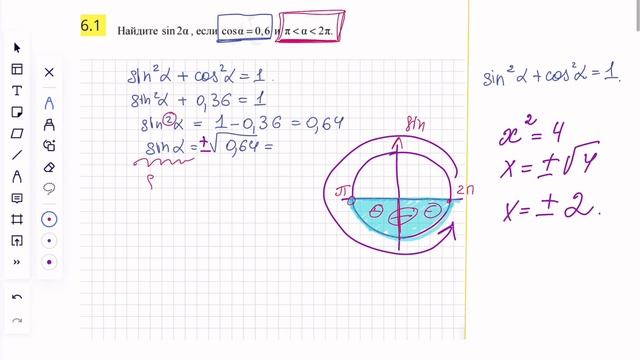 6.1 Найдите sin 2α, если cos α = 0,6 и π < α < 2π.
sin²α + cos²α = 1.
sin²α + 0,36 = 1
sin²α = 1 - 0,36 = 0,64
sin α = ±√0,64 =
sin
π
2π
sin²α + cos²α = 1.
x² = 4
x = ±√4
x = ± 2.